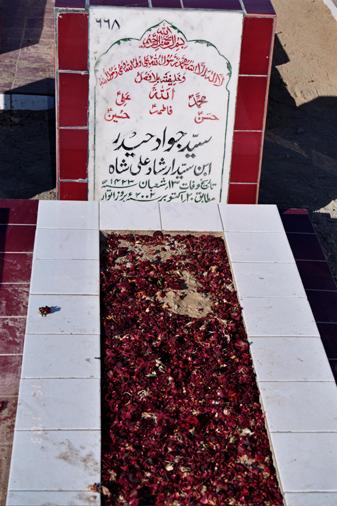 ۶۶۸
بسم اللہ الرحمن الرحیم
لا الہ الا اللہ محمد رسول اللہ علی ولی اللہ وصی رسول اللہ
وخلیفتہ بلا فصل
اللہ
محمدؐ علیؑ
فاطمہؑ
حسنؑ حسینؑ
سید جواد حیدر
ابن سید ارشاد علی شاہ
تاریخ وفات ۱۳ شعبان ۱۴۲۳ھ
مطابق ۲۰ اکتوبر ۲۰۰۲ء بروز اتوار